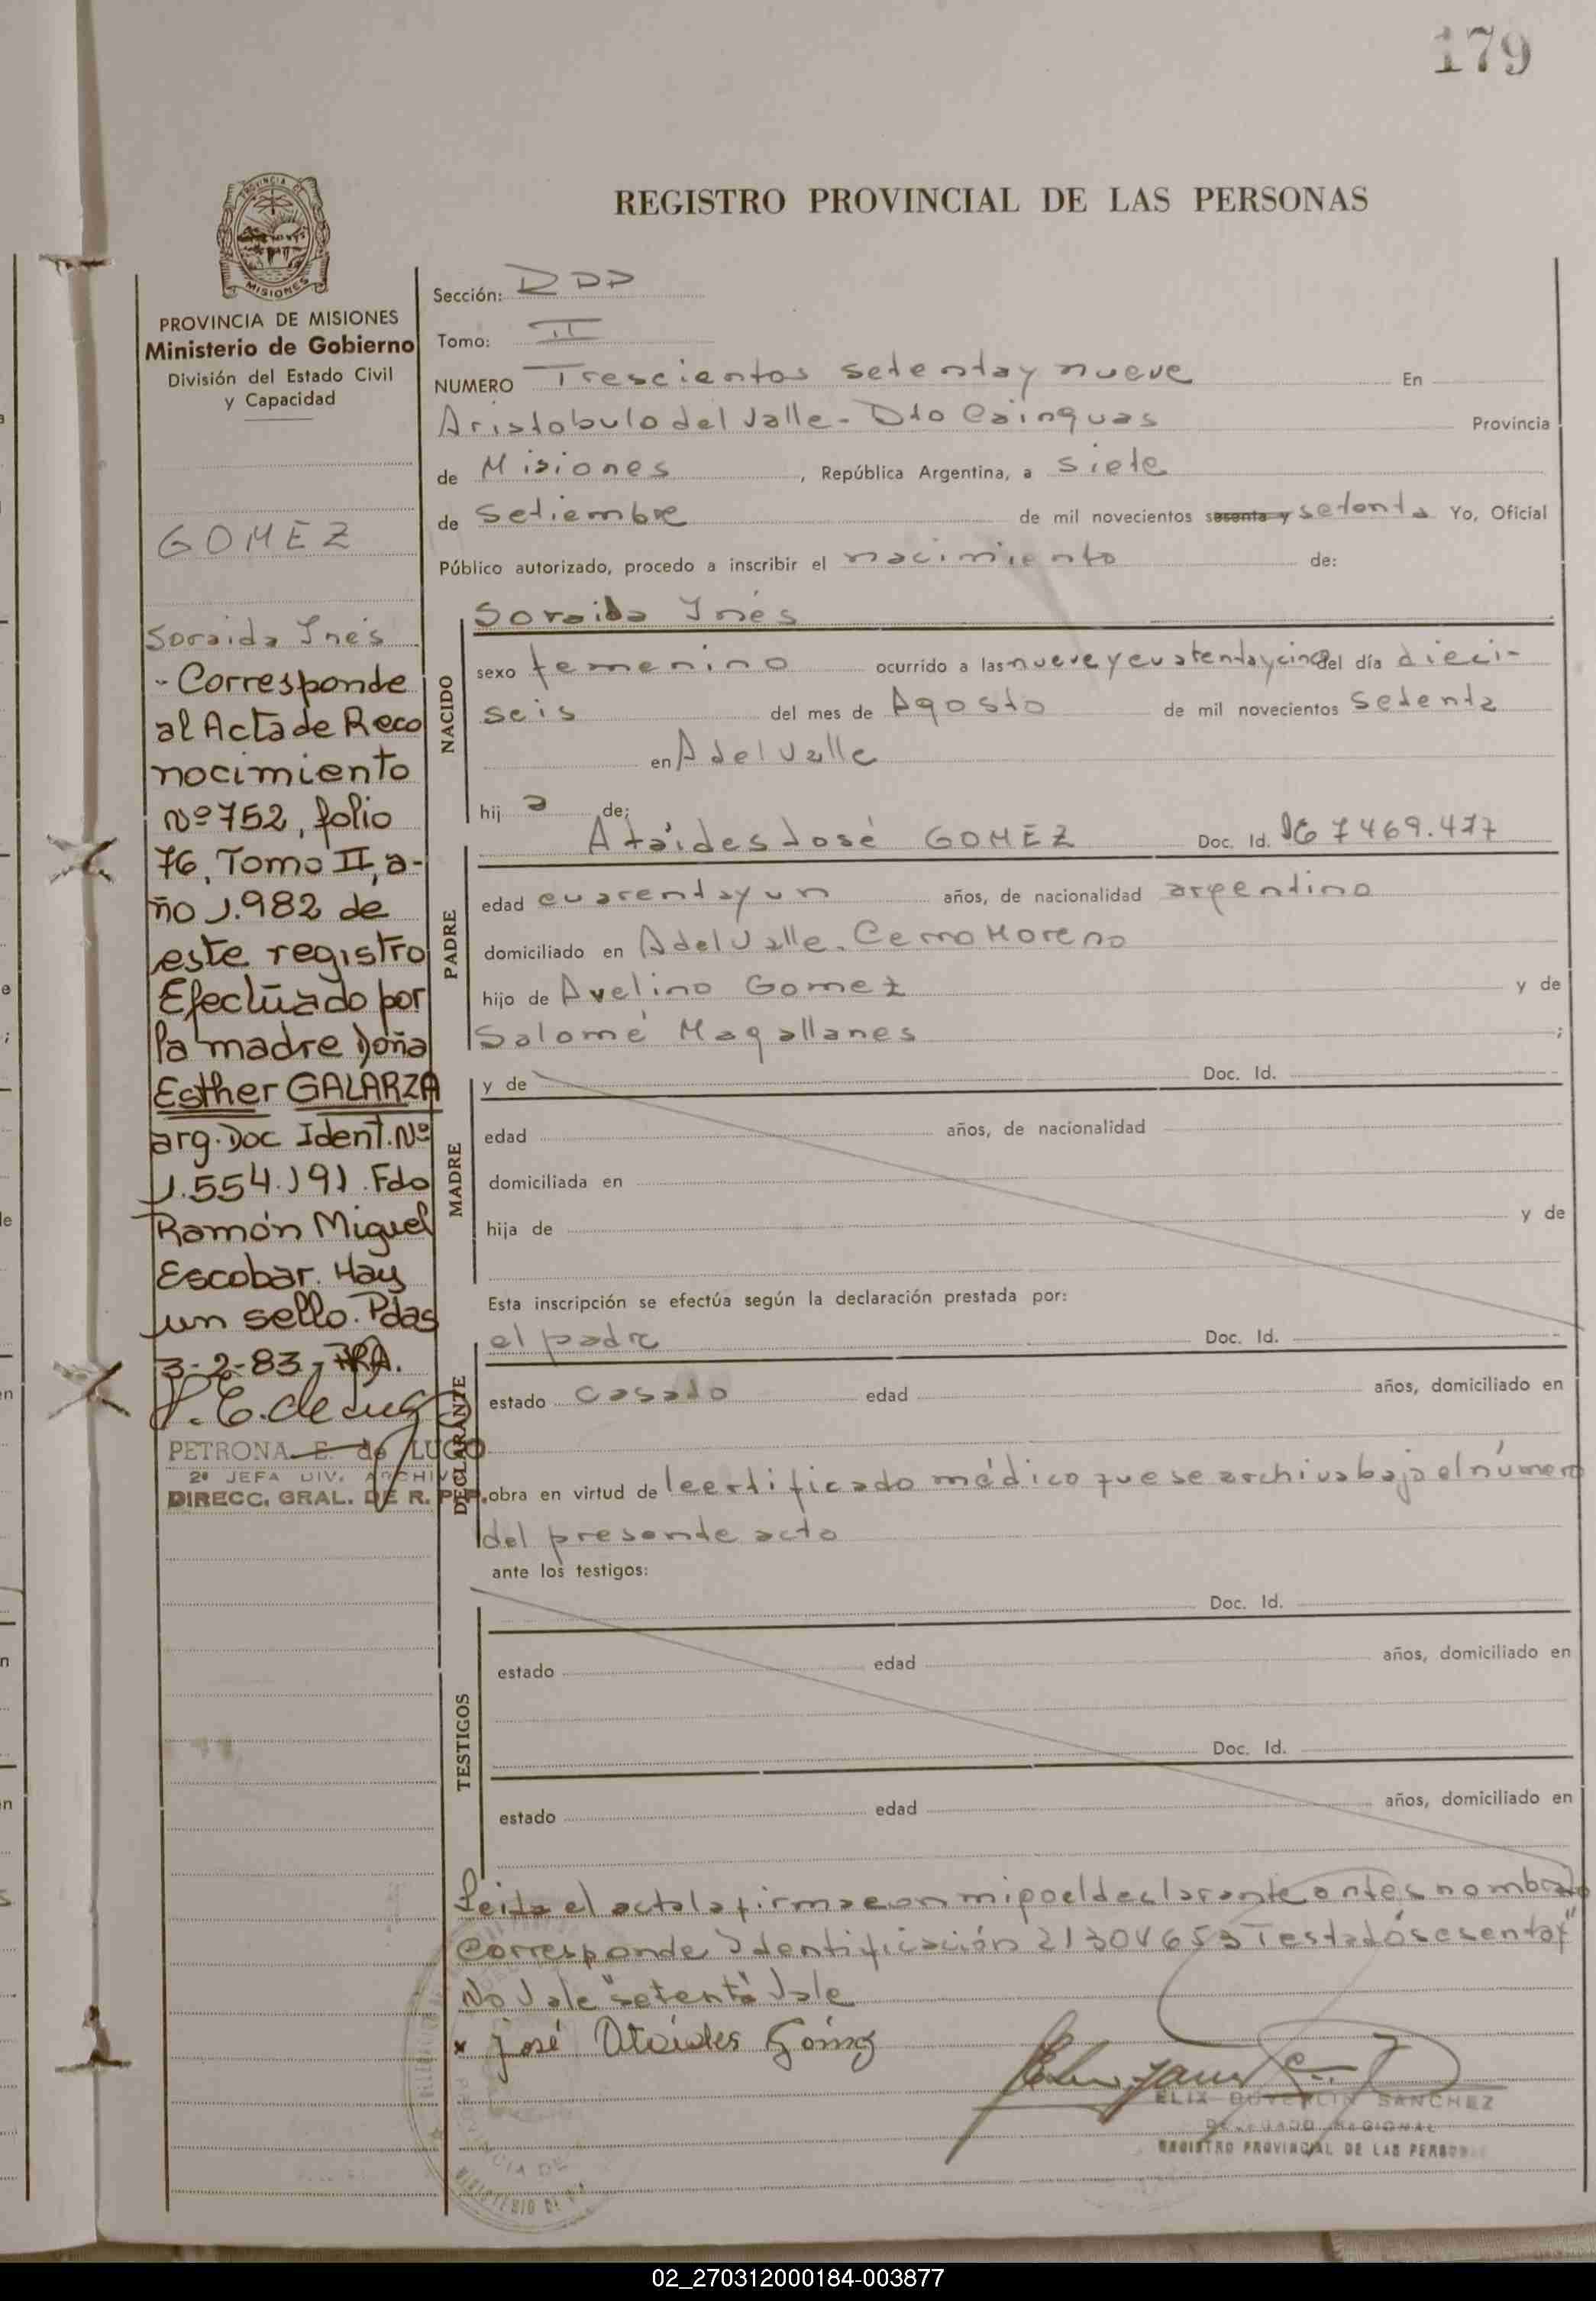 179
REGISTRO PROVINCIAL DE LAS PERSONAS
PROVINCIA DE MISIONES
PROVINCIA DE MISIONES
Ministerio de Gobierno
División del Estado Civil
y Capacidad
GOMEZ
Soraida Inés
- Corresponde
al Acta de Reco
nocimiento
Nº 752, folio
76, Tomo II, a-
ño 1.982 de
este registro
Efectúado por
la madre Doña
Esther GALARZA
arg. Doc Ident. Nº
1.554.191. Fdo
Ramón Miguel
Escobar. Hay
un sello. Pdas
3-2-83.
P. E. de Lugo
PETRONA E. de LUGO
2ª JEFA DIV. ARCHIV
DIRECC. GRAL. DE R. P. P.
Sección: RDP
Tomo: II
NUMERO Trescientos setenta y nueve En
Aristobulo del Valle - Dto Cainguas Provincia
de Misiones, República Argentina, a siete
de Setiembre de mil novecientos sesenta y setenta Yo, Oficial
Público autorizado, procedo a inscribir el nacimiento de:
NACIDO
Soraida Inés
sexo femenino ocurrido a las nueve y cuatenta y cinco del día dieci-
seis del mes de Agosto de mil novecientos setenta
en A del Valle
hij a de;
PADRE
Ataídes José GOMEZ Doc. Id. 7469.477
edad cuarenta y un años, de nacionalidad argentino
domiciliado en A del Valle. Cerro Moreno
hijo de Avelino Gomez y de
Salomé Magallanes ;
MADRE
y de Doc. Id.
edad años, de nacionalidad
domiciliada en
hija de y de
Esta inscripción se efectúa según la declaración prestada por:
DECLARANTE
el padre Doc. Id.
estado casado edad años, domiciliado en
obra en virtud de certificado médico que se archiva bajo el número
del presente acto
ante los testigos:
TESTIGOS
Doc. Id.
estado edad años, domiciliado en
Doc. Id.
estado edad años, domiciliado en
Leida el acta la firma con migo el declarante antes nombrado
Corresponde Identificación Testado "sesenta y"
No Vale "setenta" Vale
x José Ataides Gómez
ELIX SANCHEZ
DELEGADO REGIONAL
REGISTRO PROVINCIAL DE LAS PERSONAS
PROVINCIA DE
MINISTERIO DE
02_270312000184-003877